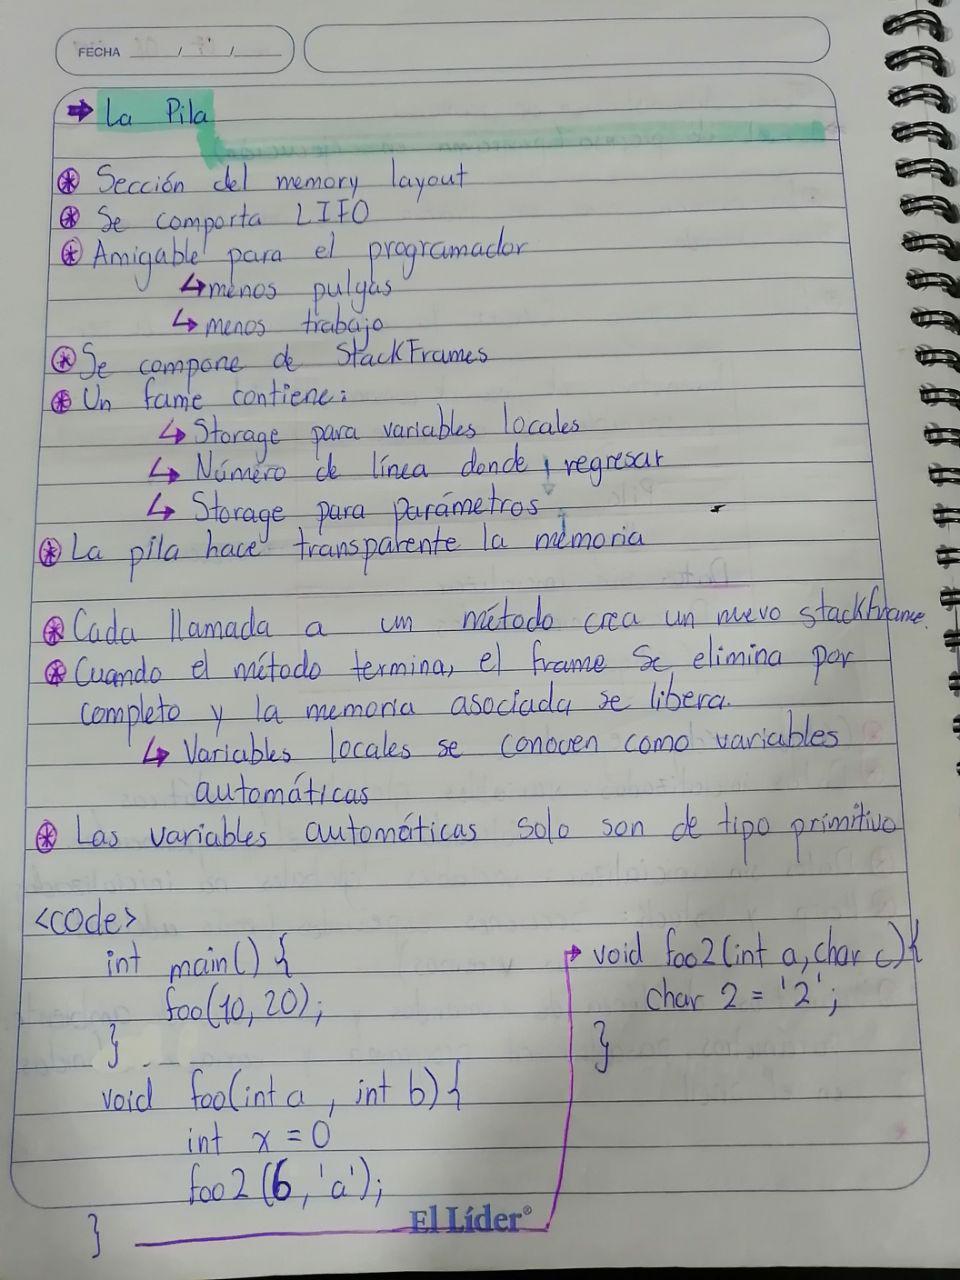 FECHA / /
La Pila
Sección del memory layout
Se comporta LIFO
Amigable para el programador
menos pulgas
menos trabajo
Se compone de StackFrames
Un fame contiene:
Storage para variables locales
Número de línea donde regresar
Storage para parámetros
La pila hace transparente la memoria
Cada llamada a un método crea un nuevo stackframe.
Cuando el método termina, el frame se elimina por
completo y la memoria asociada se libera.
Variables locales se conocen como variables
automáticas
Las variables automáticas solo son de tipo primitivo
<code>
int main() {
foo(10, 20);
}
void foo(int a, int b) {
int x = 0
foo2 (6, 'a');
}
void foo2(int a, char c) {
char 2 = '2';
}
El Líder®